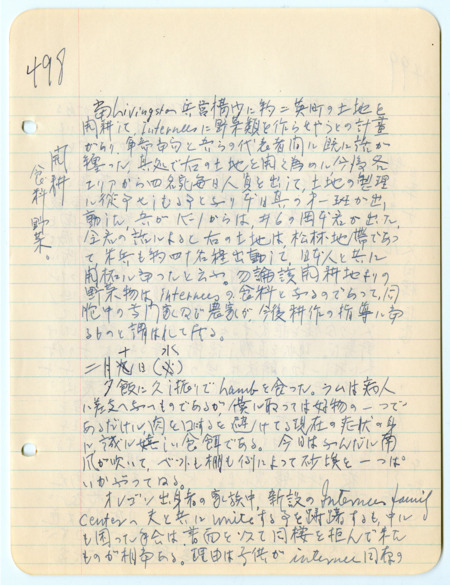 498
開耕
食料野菜。
当Livingston兵営構内に約二英町の土地を
開耕して、interneesに野菜類を作らせやうとの計画
があり、軍当局と吾らの代表者間に既に話が
纏った。其処で右の土地を開く為めに今後各
エリアから四名宛毎日人員を出して、土地の整理
に従事せしむる事となり本日其の第一班が出
動した。吾が K-1からは、#6の岡本君が出た。
全君の話によると右の土地は、松林地帯であっ
て米兵も約四十名程出動して、日本人と共に
開拓に当ったと云ふ。勿論該開耕地よりの
野菜物は interneesの食料となるのであって、同
胞中の専門家及び農家が今後耕作の指導に当
るものと謂はれてゐる。
二月十日(火)
夕飯に久し振りでlambを食った。ラムは病人
に差支へないものであるが僕に取っては好物の一つで
あるだけに肉を口にするを避けてる現在の症状の身
に誠に嬉しい食餌である。今日はふんだんに南
風が吹いて、ベットも棚も例によって砂埃を一っぱ
いかぶってゐる。
オレゴン出身者の家族中、新設のInternees family
Centerへ夫と共にuniteする事を躊躇するもの、中に
も困った事には当面を以て同棲を拒んで来た
ものが相当ある。理由は子供がinternee同様の